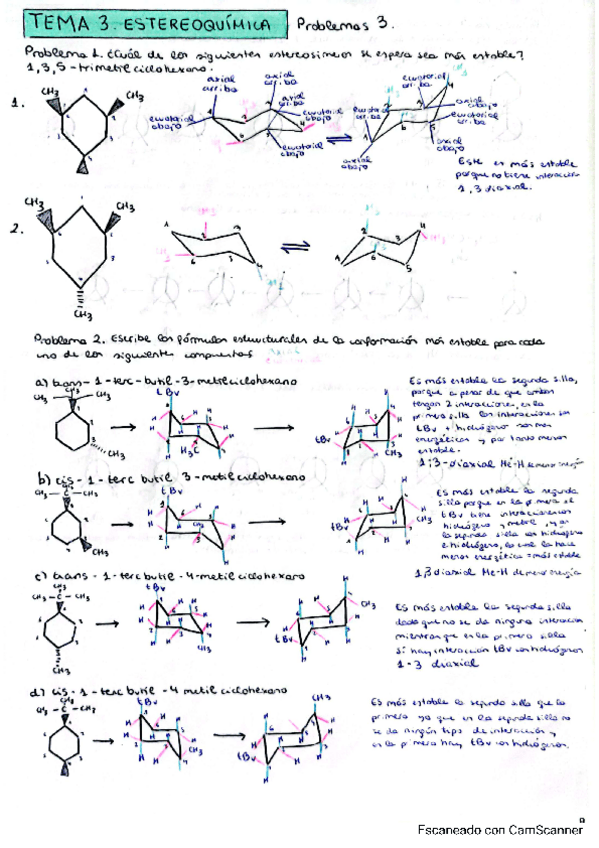 TEMA 3. ESTEREOQUÍMICA | Problemas 3.
Problema 1. ¿Cuál de los siguientes estereosimeros se espera sea más estable?
1,3,5-trimetilciclohexano.
1.
CH3
CH3
CH3
axial arriba
axial arriba
ecuatorial abajo
ecuatorial abajo
ecuatorial arriba
axial arriba
ecuatorial abajo
axial abajo
axial abajo
Este es más estable
porque no tiene interacción
1,3 diaxial.
2.
CH3
CH3
CH3
Problema 2. Escribe las fórmulas estructurales de la conformación más estable para cada
uno de los siguientes compuestos
a) trans-1-terc-butil-3-metilciclohexano
CH3
tBu
H3C
tBu
CH3
Es más estable la segunda silla,
porque a pesar de que ambas
tengan 2 interacciones, en la
primera silla las interacciones son
tBu + hidrógeno son más
energéticas y por tanto menos
estable.
1,3-diaxial Me-H de menor energía
b) cis-1-terc butil-3-metilciclohexano
CH3-C-CH3
CH3
tBu
tBu
Es más estable la segunda
silla porque en la primera el
tBu tiene interacciones
hidrógeno y metilo, y en
la segunda silla son hidrógeno
e hidrógeno, lo cual la hace
menos energética = más estable
1,3 diaxial Me-H de menor energía
c) trans-1-tercbutil-4-metil ciclohexano
CH3-C-CH3
CH3
tBu
CH3
tBu
CH3
Es más estable la segunda silla
dado que no se da ninguna interacción
mientras que en la primera silla
sí hay interacción tBu con hidrógenos
1-3 diaxial
d) cis-1-terc butil-4 metil ciclohexano
CH3-C-CH3
tBu
CH3
tBu
CH3
Es más estable la segunda silla que la
primera ya que en la segunda silla no
se da ningún tipo de interacción y
en la primera hay tBu con hidrógenos.
Escaneado con CamScanner